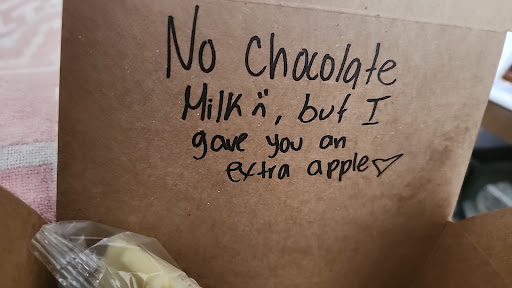 No Chocolate
Milk :(, but I
gave you an
extra apple ♡